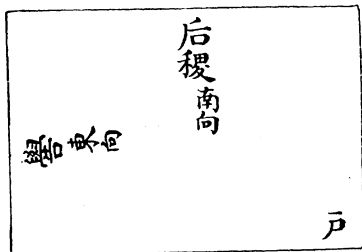 后稷南向
嚳東向
戸